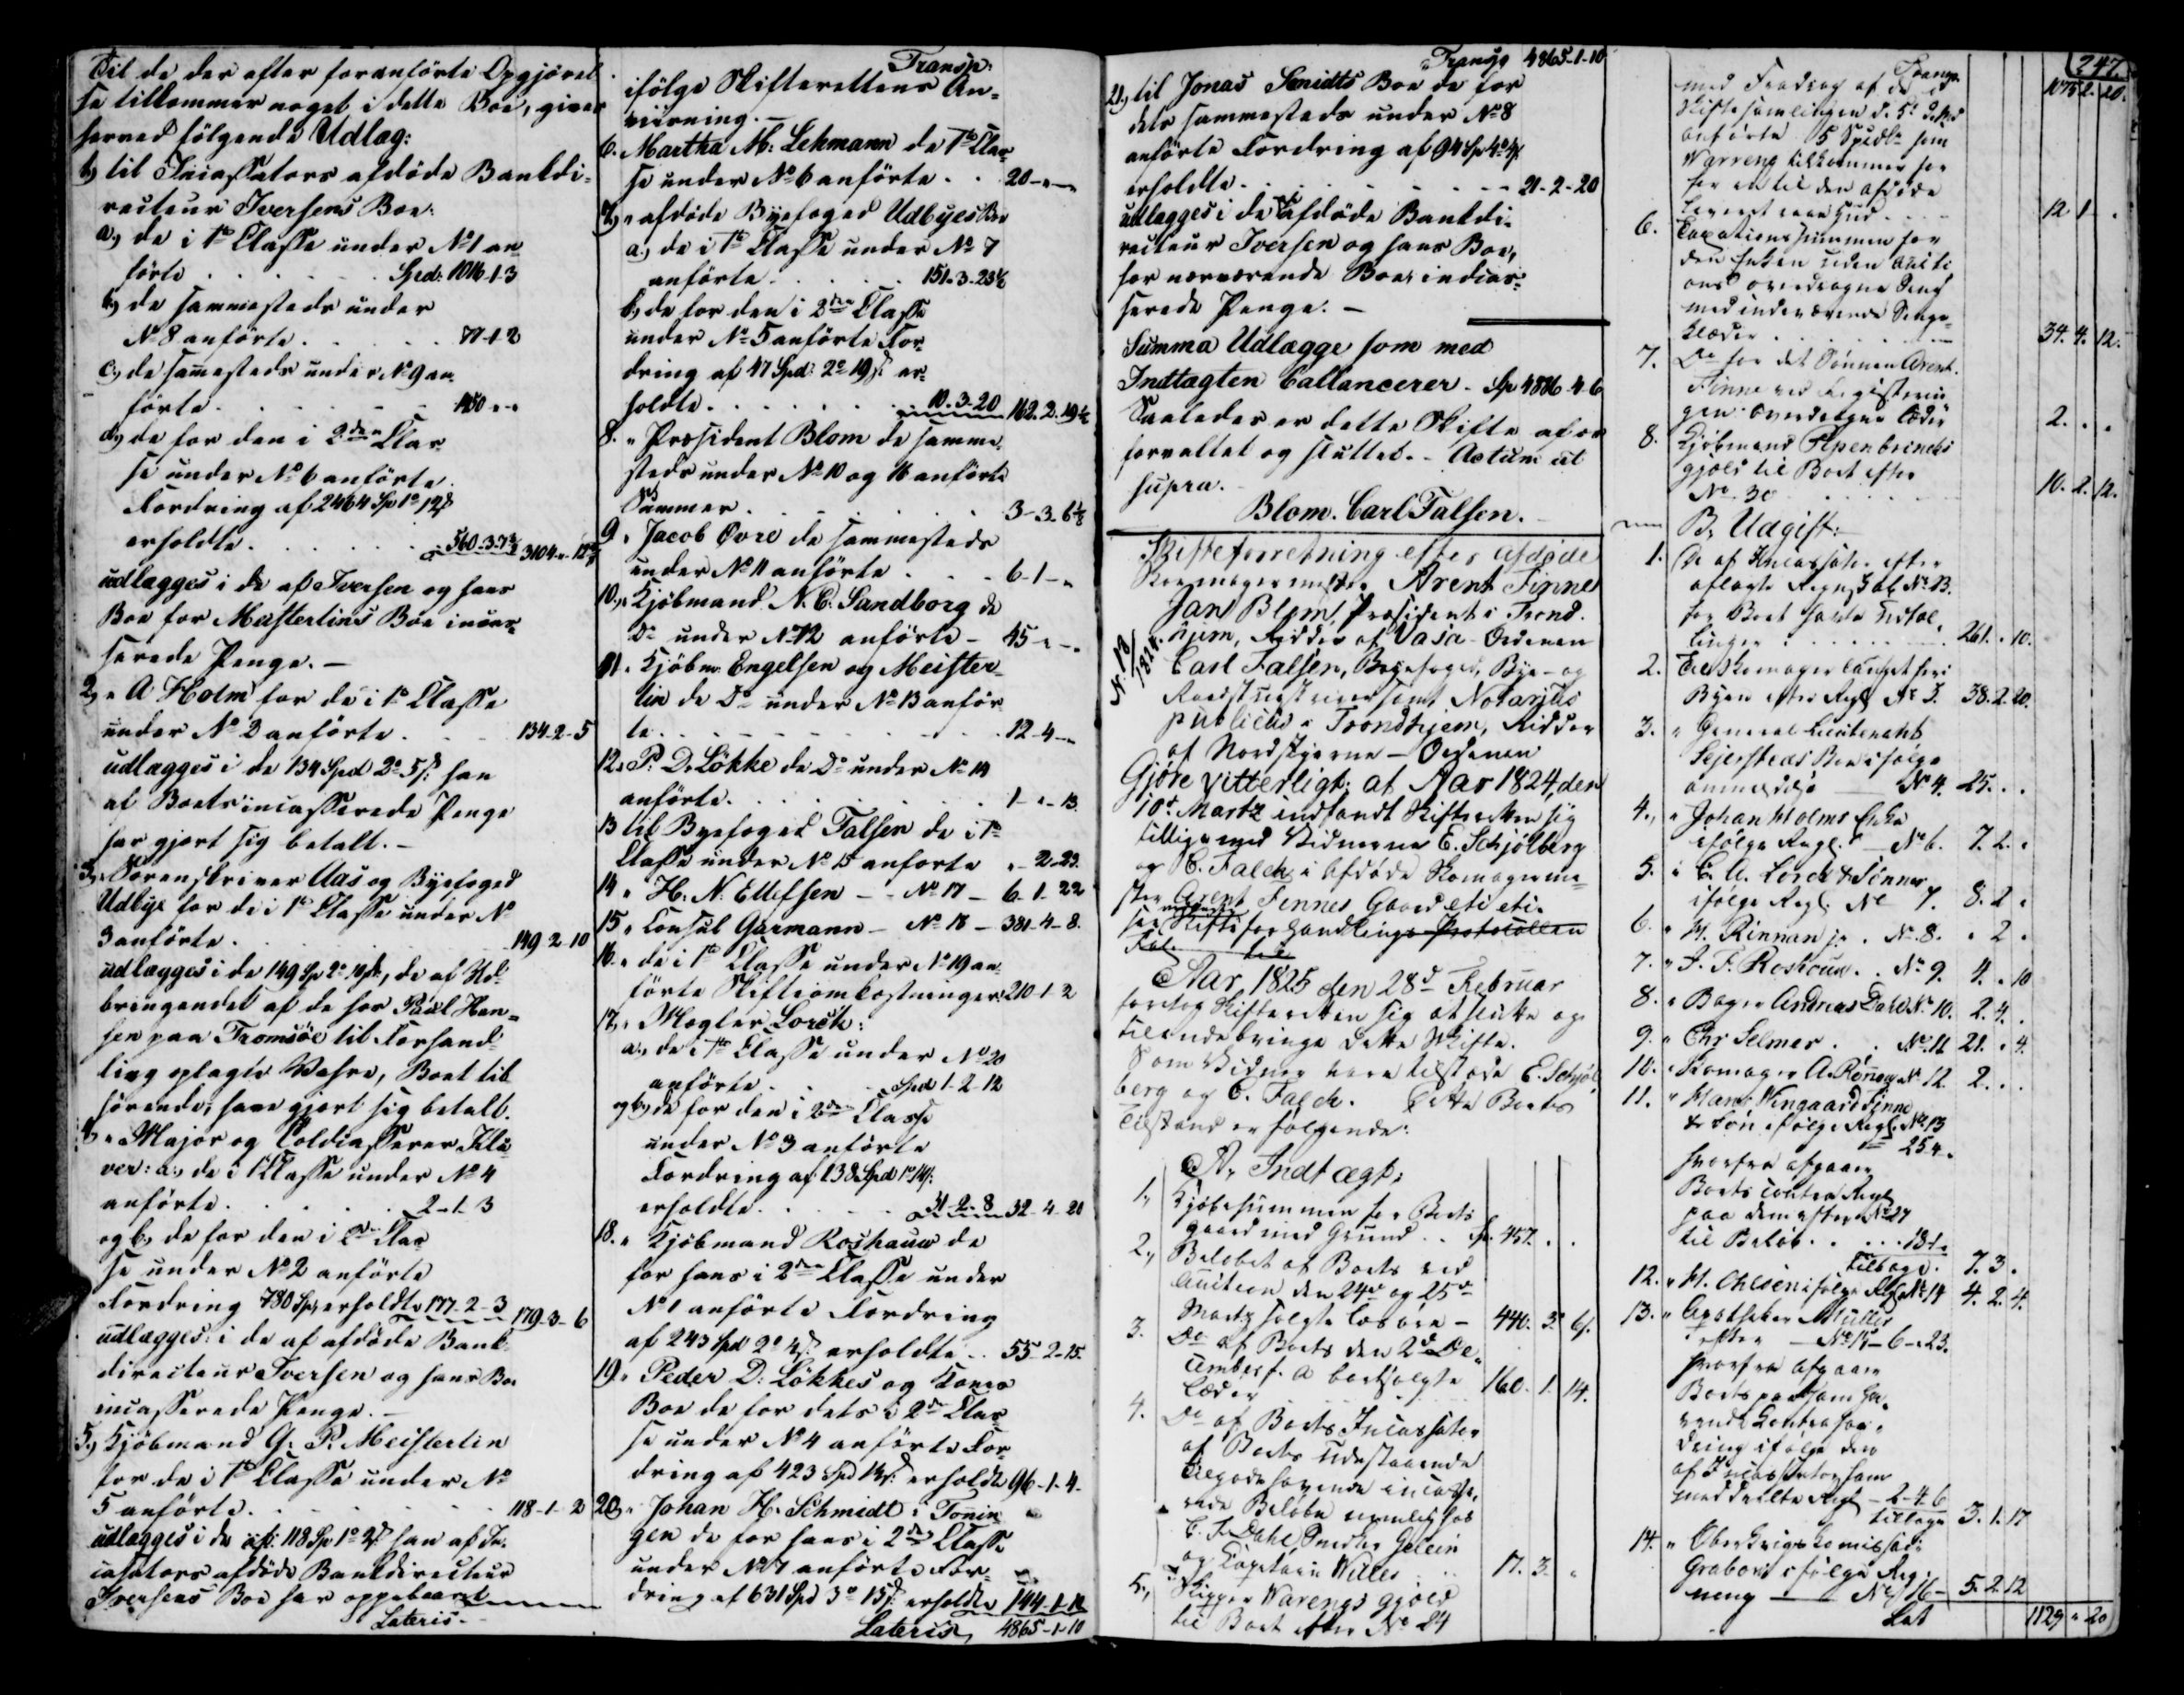 Til de der efter foranførte Opgjørel-
se tilkommer noget i dette Boe, gives
herved følgende Udlag:
1, til Incassators afdøde Bankdi-
recteur Iversens Boe:
a, de i 1ste Classe under No 1 an-
førte . . . . Spd: 1016-1-3
b, de sammesteds under
No 8 anførte . . . . 77-1-2
c, de sammesteds under No 9 an-
førte . . . . 450 " "
d, de for den i 2den Clas-
se under No 6 anførte
Fordring af 2464 Sp 1o 12s
erholdte . . . .
udlægges i de af Iversen og hans
Boe for Meisterlins Boe incas-
serede Penge. –
2, " A Holm for de i 1ste Classe
under No 2 anførte . . . 134-2-5
udlægges i de 134 Spd 2o 5s: han
af Boets incasserede Penge
har gjort sig betalt. –
3, " Sorenskriver Aas og Byefoged
Udbye for de i 1ste Classe under No
3 anførte . . . . 149-2-10
udlægges i de 149 Sp 2o 10s, de af Ud-
bringendet af de hos Paul Han-
sen paa Tromsöe til Forhand-
ling oplagte Vahre, Boet til-
hørende, have gjort sig betalt.
4, " Major og Toldinspecteur Klü-
ver: a, de i 1ste Classe under No 4
anførte . . . . 2-1-3
og b, de for den i 2den Clas-
se under No 2 anførte
Fordring 780 Sp, erholdte 177-2-3 179-3-6
udlægges i de af afdøde Bank-
directeur Iversen og hans Boe
incasserede Penge. –
5, Kjöbmand G. P. Meisterlin
for de i 1ste Classe under No
5 anførte . . . . 118-1-2
udlægges i de 118 Sp 1o 2s han af In-
casators afdöde Bankdirecteur
Iversens Boe har oppebaaret
Lateris –
Transp:
ifölge Skifterettens An-
viisning. –
6. Martha M: Lehmann de i 1ste Clas-
se under No 6 anførte . . 20-"-"
7, " afdöde Byefoged Udbyes Boe
a, de i 1ste Classe under No 7
anførte . . . 151-3-23½
b, de for den i 2den Classe
under No 5 anførte For-
dring af 47 Spd: 2o 19s er-
holdte . . . . 10-3-20 162-2-19½
8. " Præsident Blom de samme-
steds under No 10 og 16 anførte
Summer . . . . 3-3-6½
9 " Jacob Övre de sammesteds
under No 11 anførte . . . 6-1-"
10, " Kjöbmand N. C. Sandborg de
Do under No 12 anførte – 45-"-"
11 " Kjöbm: Engelsen og Meister-
lin de Do under No 13 anför-
te . . . . 12-4-"
12, " P. D. Lökke de Do under No 14
anførte . . . . 1-"-13
13 til Byefoged Falsen de i 1ste
Classe under No 15 anførte "-2-23
14 " H. N. Ellefsen – – No 17 – 6-1-22
15 " Consul Garmann – No 18 – 381-4-8.
16. " de i 1ste Classe under No 19 an-
førte Skifteomkostninger 210-1-2
17, " Mægler Lorck:
a, de i 1ste Classe under No 20
anførte . . . Spd 1-2-12
og b, de for den i 2den Classe
under No 3 anførte
Fordring af 138 Spd 1o 14s:
erholdte . . . . 31-2-8 32-4-20
18. " Kjöbmand Roshauw de
for hans i 2den Classe under
No 1 anførte Fordring
af 243 Spd 2o 4s: erholdte . . 55-2-15
19, " Peder D: Lökkes og Kones
Boe de for dets i 2den Clas-
se under No 4 anførte For-
dring af 423 Spd 14s: erholdte 96-1-4-
20, " Johan H. Schmidt i Tönin-
gen de for hans i 2den Classe
under No 7 anførte For-
dring af 631 Spd 3o 15s: erholdte
Lateris, 4865-1-10
Transp 4865-1-10
21, til Jonas Smidts Boe de for
dets sammesteds under No 8
anførte Fordring af 94 Sp 4o 4s
erholdte . . . . 21-2-20
udlægges i de af afdöde Bankdi-
recteur Iversen og hans Boe,
for nærværende Boe, indcas-
serede Penge. –
Summa Udlægge som med
Indtægten ballancerer – Sp 4886-4-6
Saaledes er dette Skifte af os
forvaltet og sluttet. – Actum ut
supra. –
Blom. Carl Falsen.
No 18/1824
Skifteforretning efter afdøde
Skomagermester Arent Finne
Jan Blom, Præsident i Trond-
hjem, Ridder af Vasa-Ordenen
Carl Falsen, Byefoged, Bye- og
Raadstueskriver samt Notarius
publicus i Trondhjem, Ridder
af Nordstjerne-Ordenen
Gjöre vitterligt: at Aar 1824, den
10de Martz indfandt Skifteretten sig
tilligemed Vidnerne E. Schjölberg
og C. Falch i Afdøde Skomagerme-
ster Arent Finnes Gaard etc etc.
see Skifteforhandlings-Protocollen
Fol. til
Aar 1825 den 28de Februar
foretog Skifteretten sig at slutte og
tilendebringe dette Skifte.
Som Vidner vare tilstæde E. Schjöl-
berg og C. Falch. Dette Boets
Tilstand er følgende:
A, Indtægt:
1, Kjøbesummen for Boets
Gaard med Grund . . Sp. 457. . .
2, Beløbet af Boets ved
Auction den 24de og 25de
Martz solgte Løsøre – 440. 3. 6.
3. Do af Boets den 2de De-
cember f. A bortsolgte
Læder . . . 160. 1. 14.
4. Do af Boets Incassator
af Boets udestaaende
Tilgodehavende incasse-
rede Beløbe nemlig hos
C. F. Dahl Smeder Gelein
og Capitain Wille . . 17. 3. "
5, Skipper Warengs Gjæld
til Boet efter No 24
247
Transp. 1075. 2. 20.
med Fradrag af de i
Skiftesamlingen d. 5te
anførte 5 Spdlr som
Warreng tilkommer for
for en til den afdøde
leveret raae Hud . . . 12. 1. .
6. Taxationssummen for
den Enken uden Aucti-
on overdragne Seng
med indeværende Senge-
klæder . . . 34. 4. 12.
7. Do for det Sönnen Arent
Finne ved Registerin-
gen overdragne Læder 2. . .
8. Kjöbmand Piperbrincks
Gjæld til Boet efter
No 30 . . . . 10. 2. 12.
B, Udgift:
1. De af Incassator efter
aflagte Regnskab No 23.
for Boet havte Udtæl-
linger . . . 261. " 10.
2. Til Skomager lauget her i
Byen efter Regl No 3. 38. 2. 20.
3. " General Lieutenant
Sejersteds Boe ifølge
anmeldelse – No 4. 25. . .
4., " Johan Holms Enke
ifølge Regl. – No 6. 7. 2. "
5. " C. A. Lorck & Sönner
ifölge Regl. No 7. 8. 2 "
6. " H. Rinnan jr. . No 8. " 2 "
7. " J. F. Roshouw . . No 9. 4. " 10
8. " Bager Andreas Dahl No 10. 2. 4. .
9. " Chr Selmer . . No 11 21. " 4.
10. " Skomager A. Rönne No 12. 2. . .
11. " Hans Wengaard Finne
& Sön ifølge Regl. No 13
25. 4. "
hvorfra afgaaer
Boets contra Regl
paa dem efter No 27
til Beløb . . . . 18. 1. "
tilbage. 7. 3.
12. " H. Ohlsen ifølge Regl. No 14 4. 2. 4.
13. " Apotheker Müller
efter – No 15 – 6 – " 23.
hvorfra afgaaer
Boets paa ham ha-
vende Contra for-
dring ifölge den
af Incassator ham
meddeelte Regl – 2-4-6
tilbage 3. 1. 17
14. " Oberkrigscomissair
Grabow ifølge Reg-
ning – No 16 – 5. 2. 12
Lat 1129 " 20